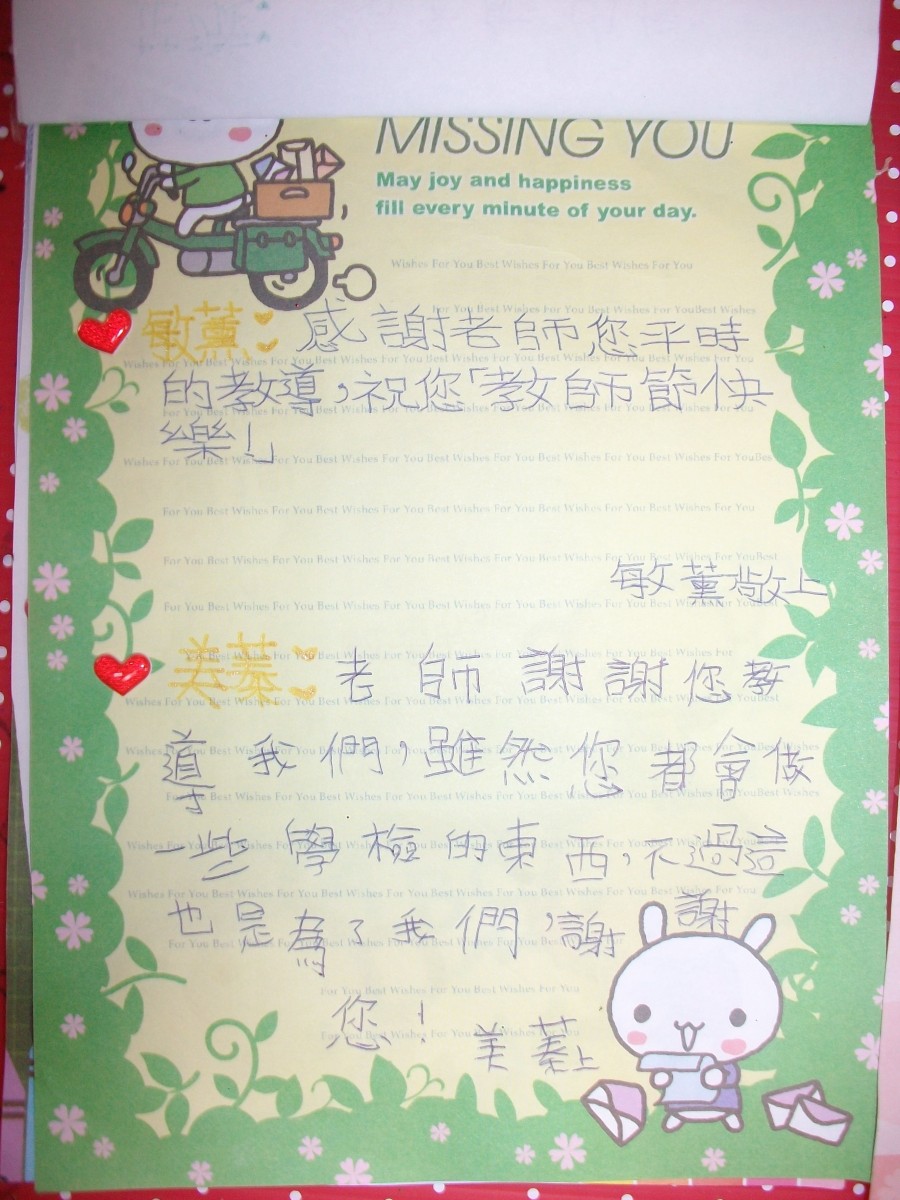 MISSING YOU
May joy and happiness
fill every minute of your day.
Wishes For You Best Wishes For You Best Wishes For You
敏薰 感謝老師您平時
的教導,祝您「教師節快
樂!」
敏薰敬上
美蓁 老師謝謝您教
導我們,雖然您都會做
一些學檢的東西,不過這
也是為了我們,謝謝
您! 美蓁上